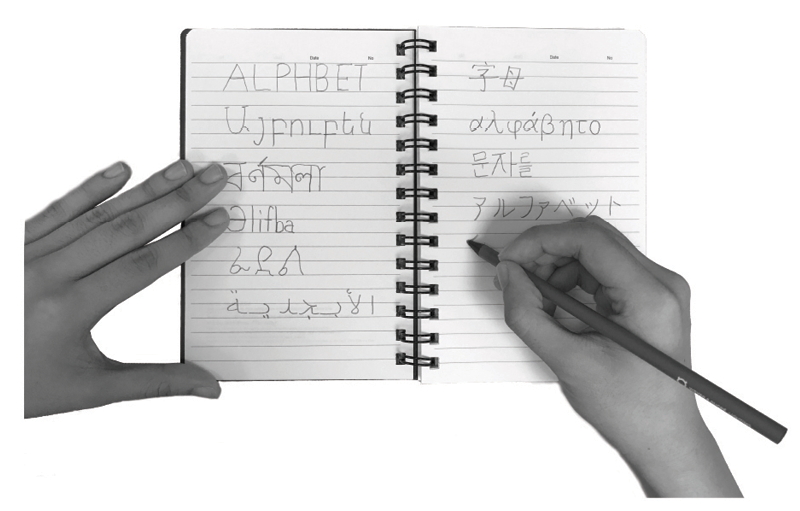 Date No
ALPHBET
Այբուբեն
বর্ণমালা
Əlifba
ፊደል
الأبجدية
Date No
字母
αλφάβητο
문자를
アルファベット